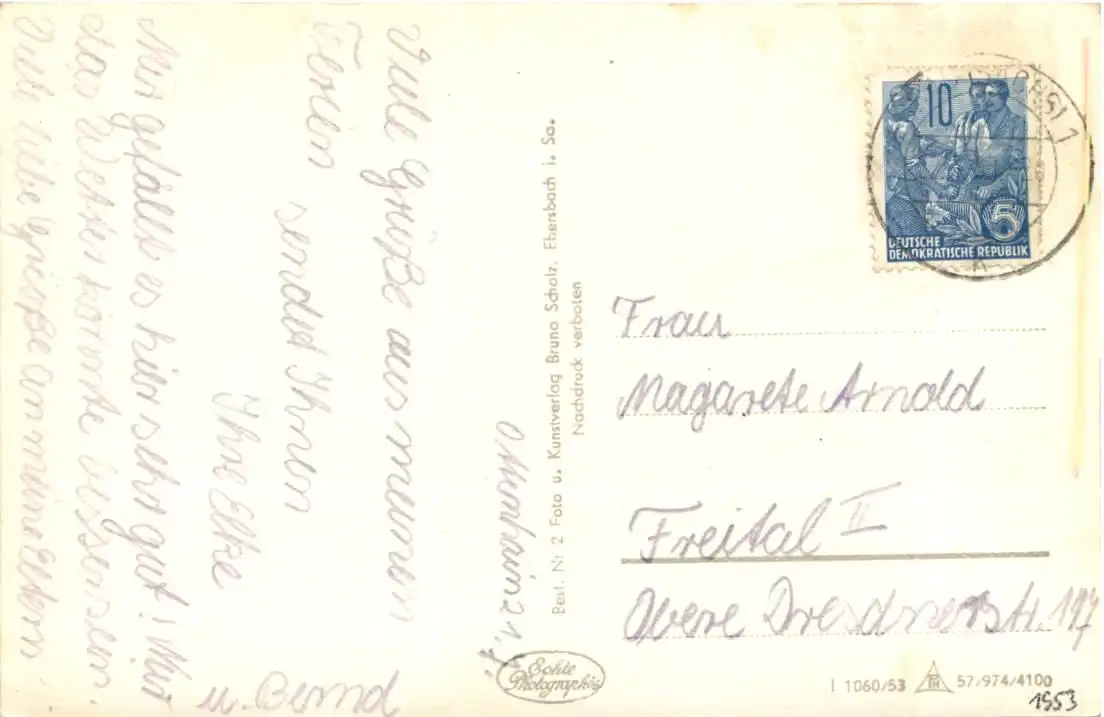 Ottenhain 21. 7.
Viele Grüße aus meinen
Ferien
sendet Ihnen
Ihre Elke
u. Bernd
Mir gefällt es hier sehr gut! Nur
das Wetter könnte besser sein.
Viele liebe Grüße an meine Eltern.
Best. Nr. 2 Foto u. Kunstverlag Bruno Scholz, Ebersbach i. Sa.
Nachdruck verboten
Echte
Photographie
10
5
DEUTSCHE
DEMOKRATISCHE REPUBLIK
Frau
Magarete Arnold
Freital II
Obere Dresdnerstr. 197
I 1060/53 57/974/4100
1953